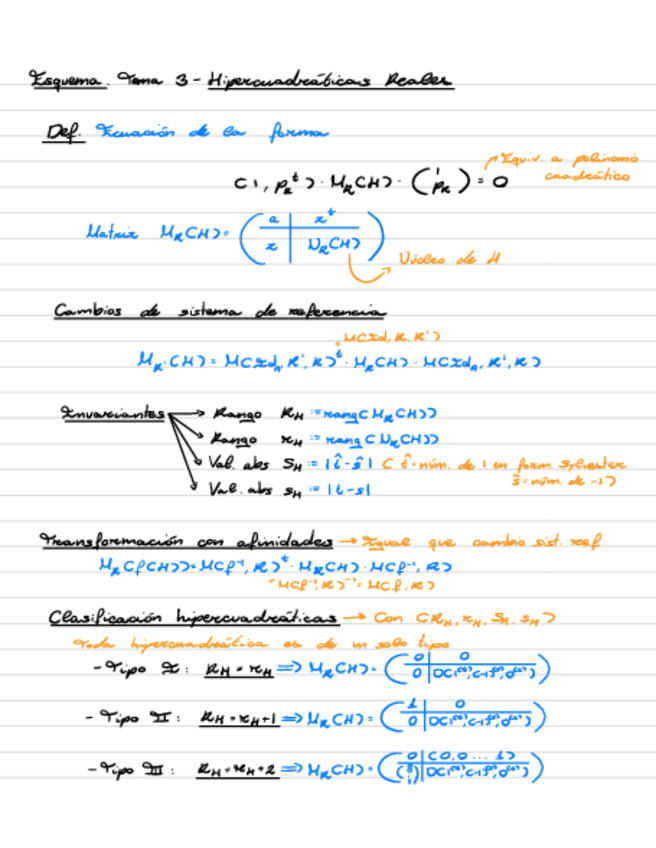 Esquema. Tema 3 - Hipercuadráticas Reales
Def. Ecuación de la forma
(1, p_R^t) · M_R(H) · (1 / p_R) = 0 → Equiv. a polinomio cuadrático
Matriz M_R(H) = ( a | z^t / z | N_R(H) ) → Núcleo de H
Cambios de sistema de referencia
M(Id, R, R')
M_R'(H) = M(Id_A, R', R)^t · M_R(H) · M(Id_A, R', R)
Invariantes → Rango R_H := rang(M_R(H))
→ Rango r_H := rang(N_R(H))
→ Val. abs S_H := |t̂ - ŝ| ( t̂ = núm. de 1 en form Sylvester
ŝ = núm. de -1)
→ Val. abs s_H := |t - s|
Transformación con afinidades → Igual que cambio sist. ref
M_R(f(H)) = M(f^-1, R)^t · M_R(H) · M(f^-1, R)
M(f^-1, R)^-1 = M(f, R)
Clasificación hipercuadráticas → Con (R_H, r_H, S_H, s_H)
Toda hipercuadrática es de un solo tipo
- Tipo I: R_H = r_H ⇒ M_R(H) = ( 0 | 0 / 0 | D(1^(t), (-1)^(s), 0^(d)) )
- Tipo II: R_H = r_H + 1 ⇒ M_R(H) = ( 1 | 0 / 0 | D(1^(t), (-1)^(s), 0^(d)) )
- Tipo III: R_H = r_H + 2 ⇒ M_R(H) = ( 0 | (0, 0 ... 1) / (0 ⋮ 1) | D(1^(t), (-1)^(s), 0^(d)) )